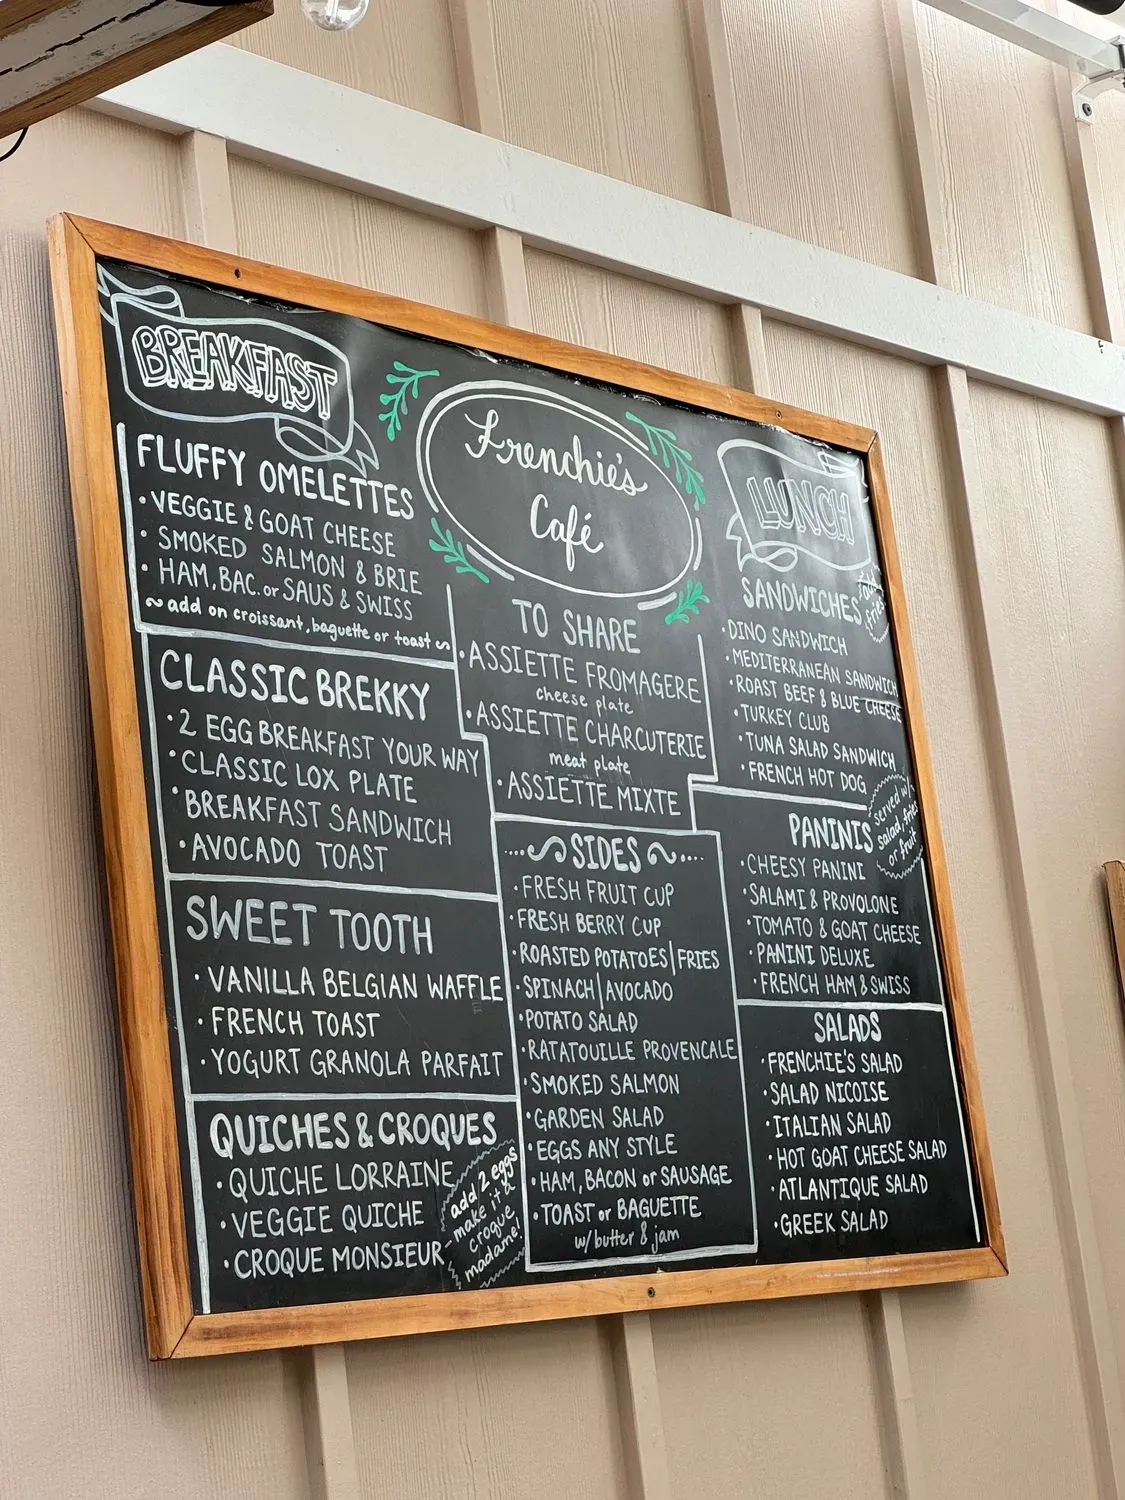 BREAKFAST
FLUFFY OMELETTES
• VEGGIE & GOAT CHEESE
• SMOKED SALMON & BRIE
• HAM, BAC. or SAUS & SWISS
~ add on croissant, baguette or toast ~
CLASSIC BREKKY
• 2 EGG BREAKFAST YOUR WAY
• CLASSIC LOX PLATE
• BREAKFAST SANDWICH
• AVOCADO TOAST
SWEET TOOTH
• VANILLA BELGIAN WAFFLE
• FRENCH TOAST
• YOGURT GRANOLA PARFAIT
QUICHES & CROQUES
• QUICHE LORRAINE
• VEGGIE QUICHE
• CROQUE MONSIEUR
add 2 eggs
- make it a
croque
madame!
Frenchie's
Café
TO SHARE
• ASSIETTE FROMAGERE
cheese plate
• ASSIETTE CHARCUTERIE
meat plate
• ASSIETTE MIXTE
SIDES
• FRESH FRUIT CUP
• FRESH BERRY CUP
• ROASTED POTATOES | FRIES
• SPINACH | AVOCADO
• POTATO SALAD
• RATATOUILLE PROVENCALE
• SMOKED SALMON
• GARDEN SALAD
• EGGS ANY STYLE
• HAM, BACON or SAUSAGE
• TOAST or BAGUETTE
w/ butter & jam
LUNCH
SANDWICHES
add
fries
• DINO SANDWICH
• MEDITERRANEAN SANDWICH
• ROAST BEEF & BLUE CHEESE
• TURKEY CLUB
• TUNA SALAD SANDWICH
• FRENCH HOT DOG
PANINIS
served w/
salad, fries
or fruit
• CHEESY PANINI
• SALAMI & PROVOLONE
• TOMATO & GOAT CHEESE
• PANINI DELUXE
• FRENCH HAM & SWISS
SALADS
• FRENCHIE'S SALAD
• SALAD NICOISE
• ITALIAN SALAD
• HOT GOAT CHEESE SALAD
• ATLANTIQUE SALAD
• GREEK SALAD